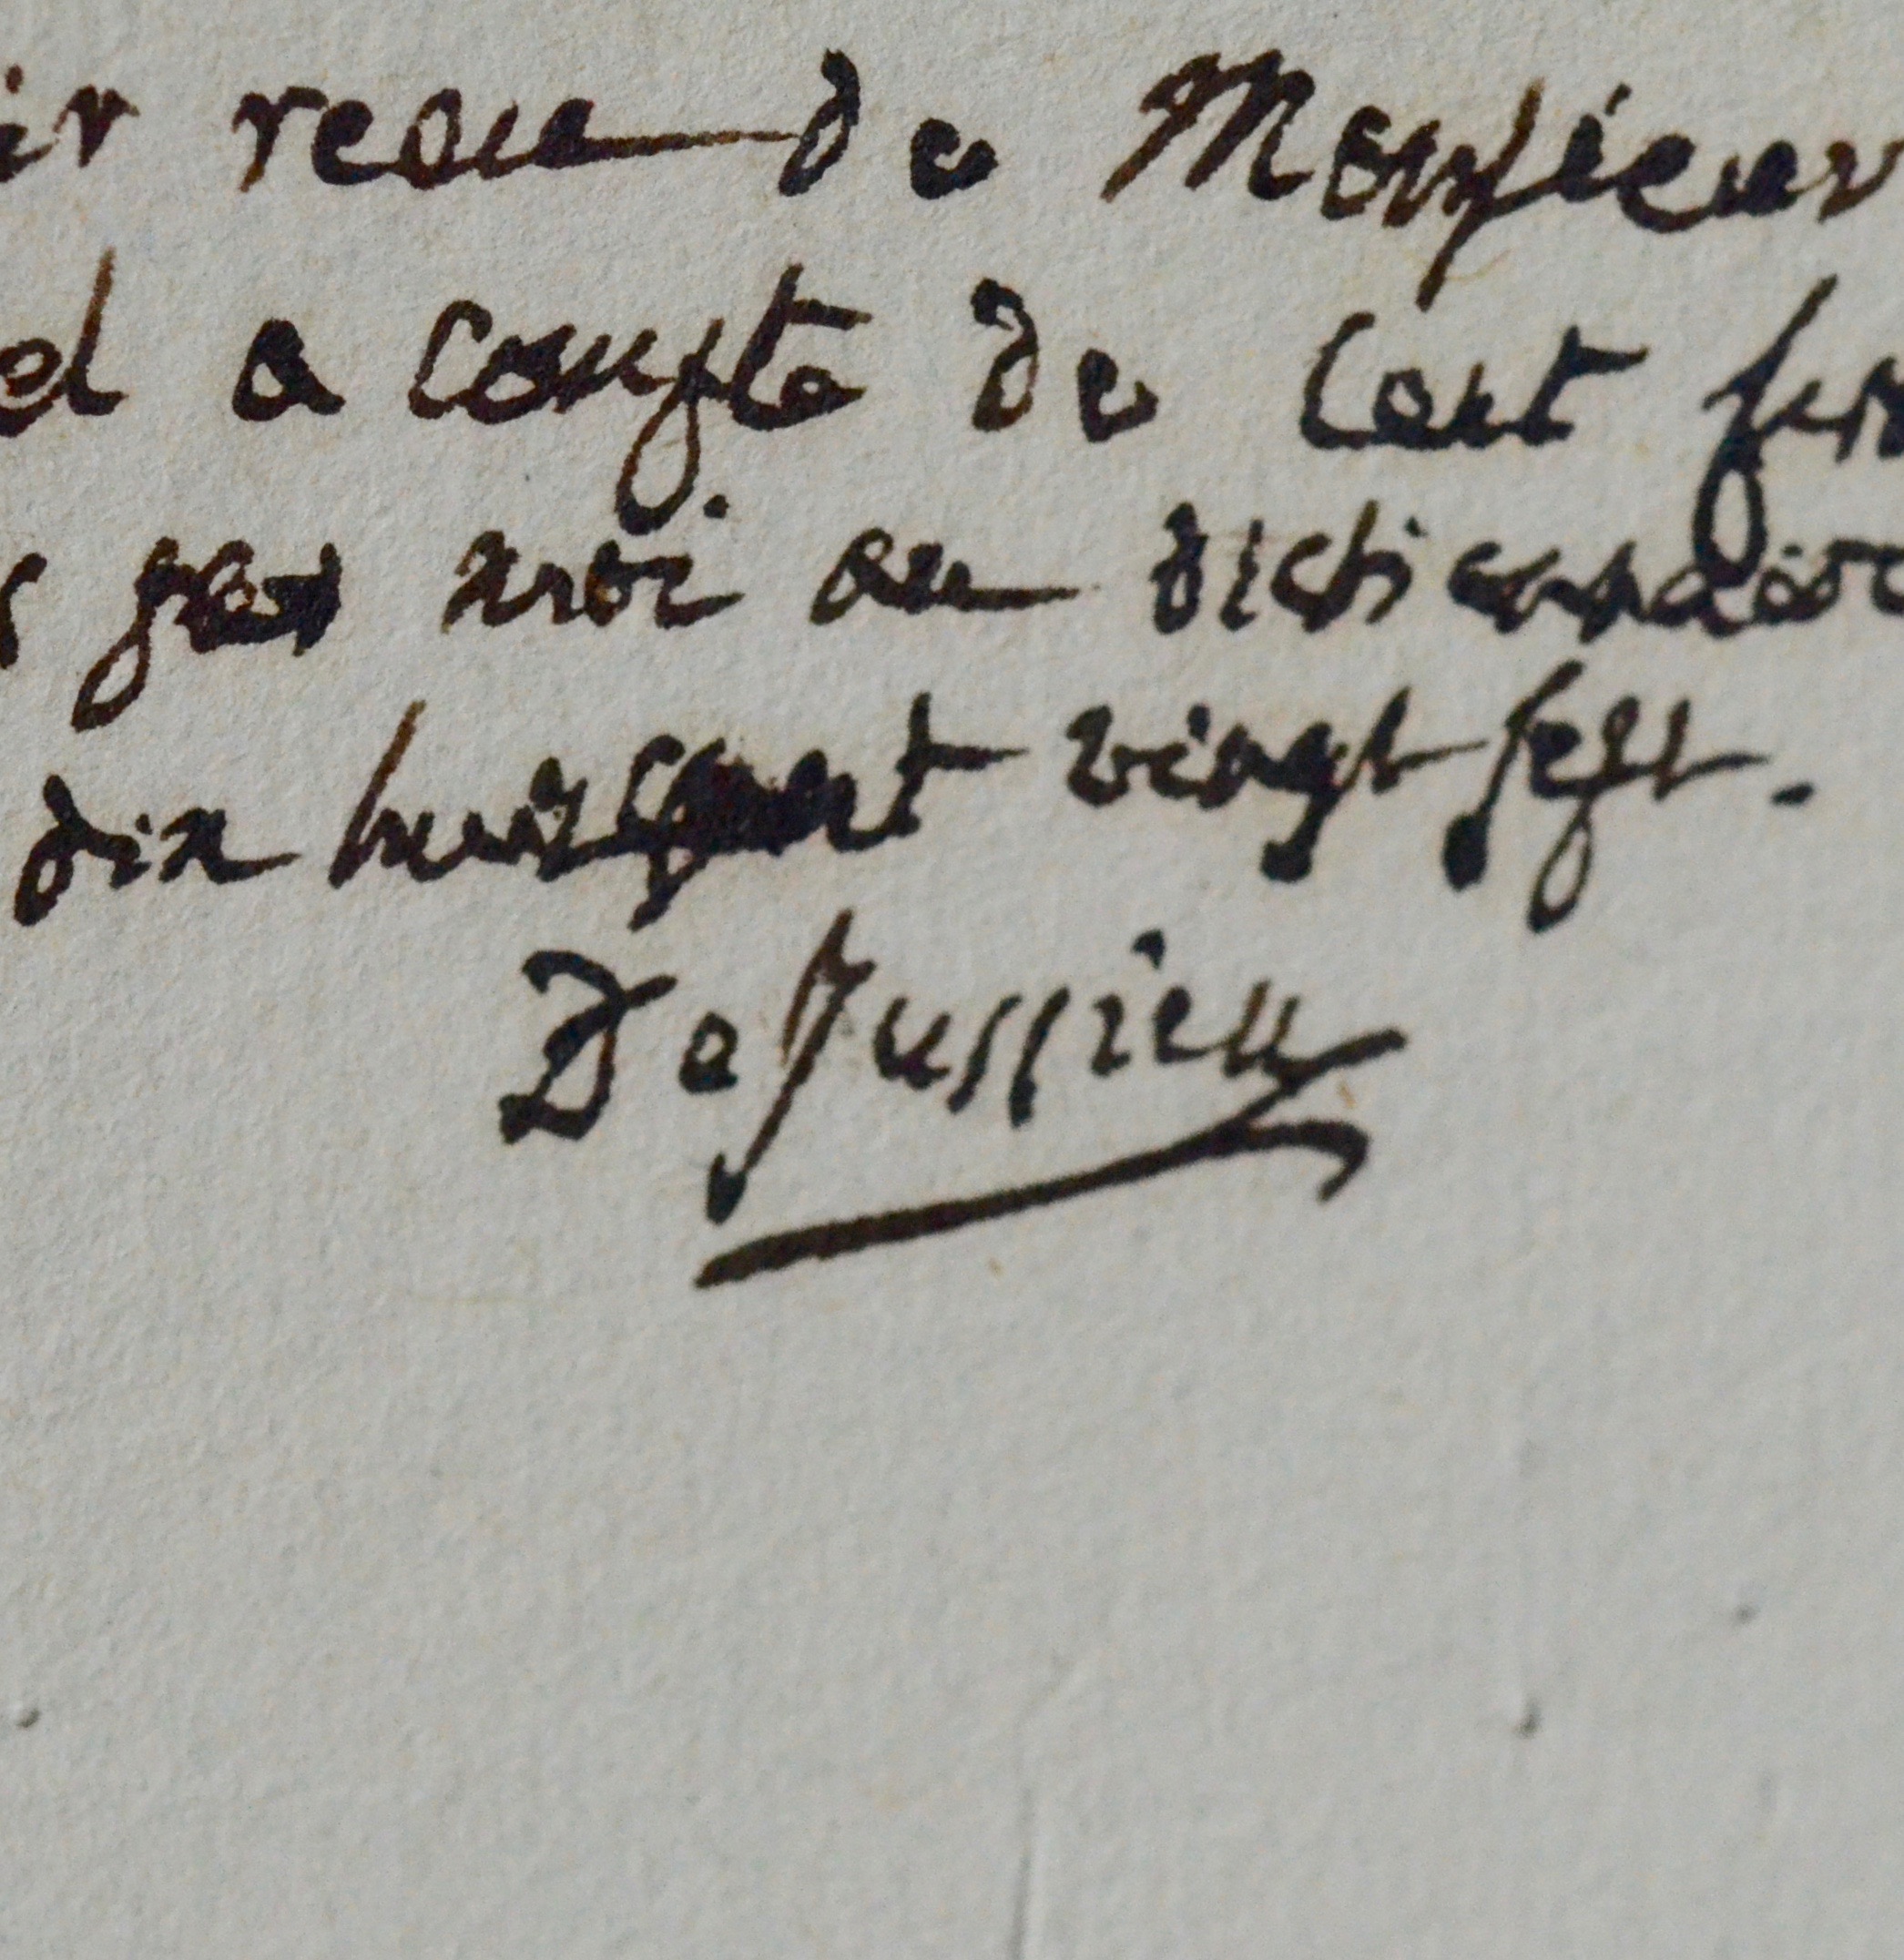 ir recu de Monsieur
el a compte de Cent
par moi au dictionnaire
dix huit cent vingt sept.
De Jussieu